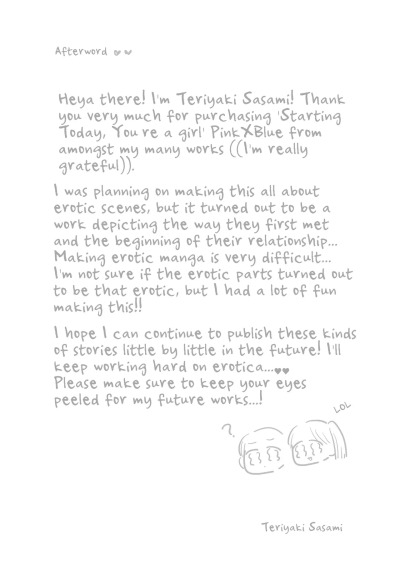 Afterword ♥♥
Heya there! I'm Teriyaki Sasami! Thank
you very much for purchasing 'Starting
Today, You're a girl' PinkXBlue from
amongst my many works ((I'm really
grateful)).
I was planning on making this all about
erotic scenes, but it turned out to be a
work depicting the way they first met
and the beginning of their relationship...
Making erotic manga is very difficult...
I'm not sure if the erotic parts turned out
to be that erotic, but I had a lot of fun
making this!!
I hope I can continue to publish these kinds
of stories little by little in the future! I'll
keep working hard on erotica...♥♥
Please make sure to keep your eyes
peeled for my future works...!
LOL
?
Teriyaki Sasami